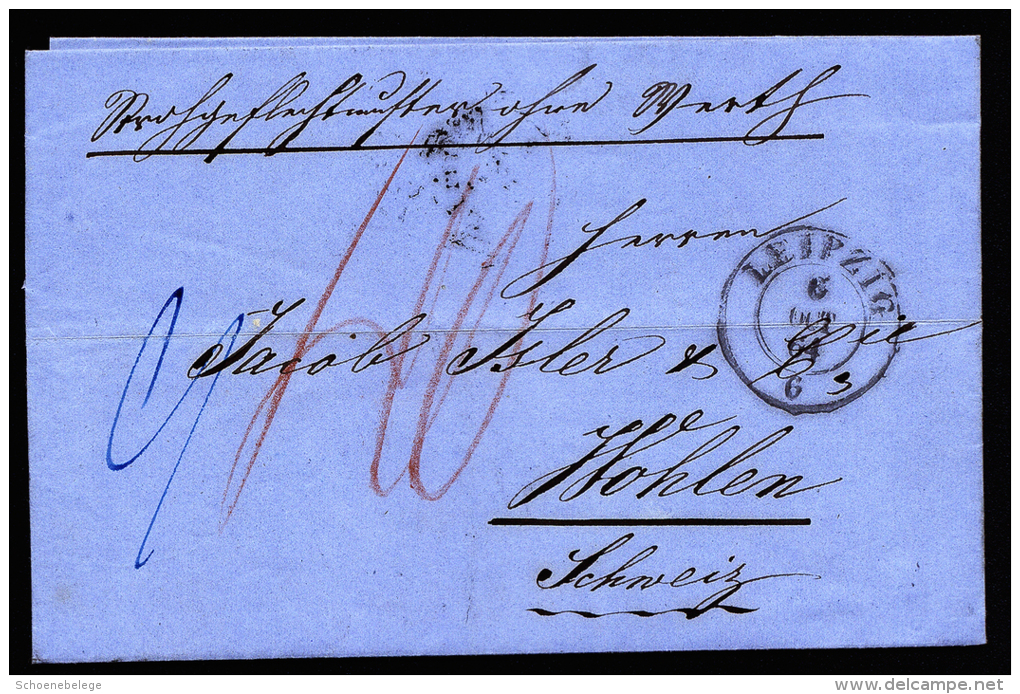 Strohgeflechtmuster ohne Werth
Herren
Jacob Isler & Cie
Wohlen
Schweiz
LEIPZIG
6
64
6
40
Schoenebelege
www.delcampe.net